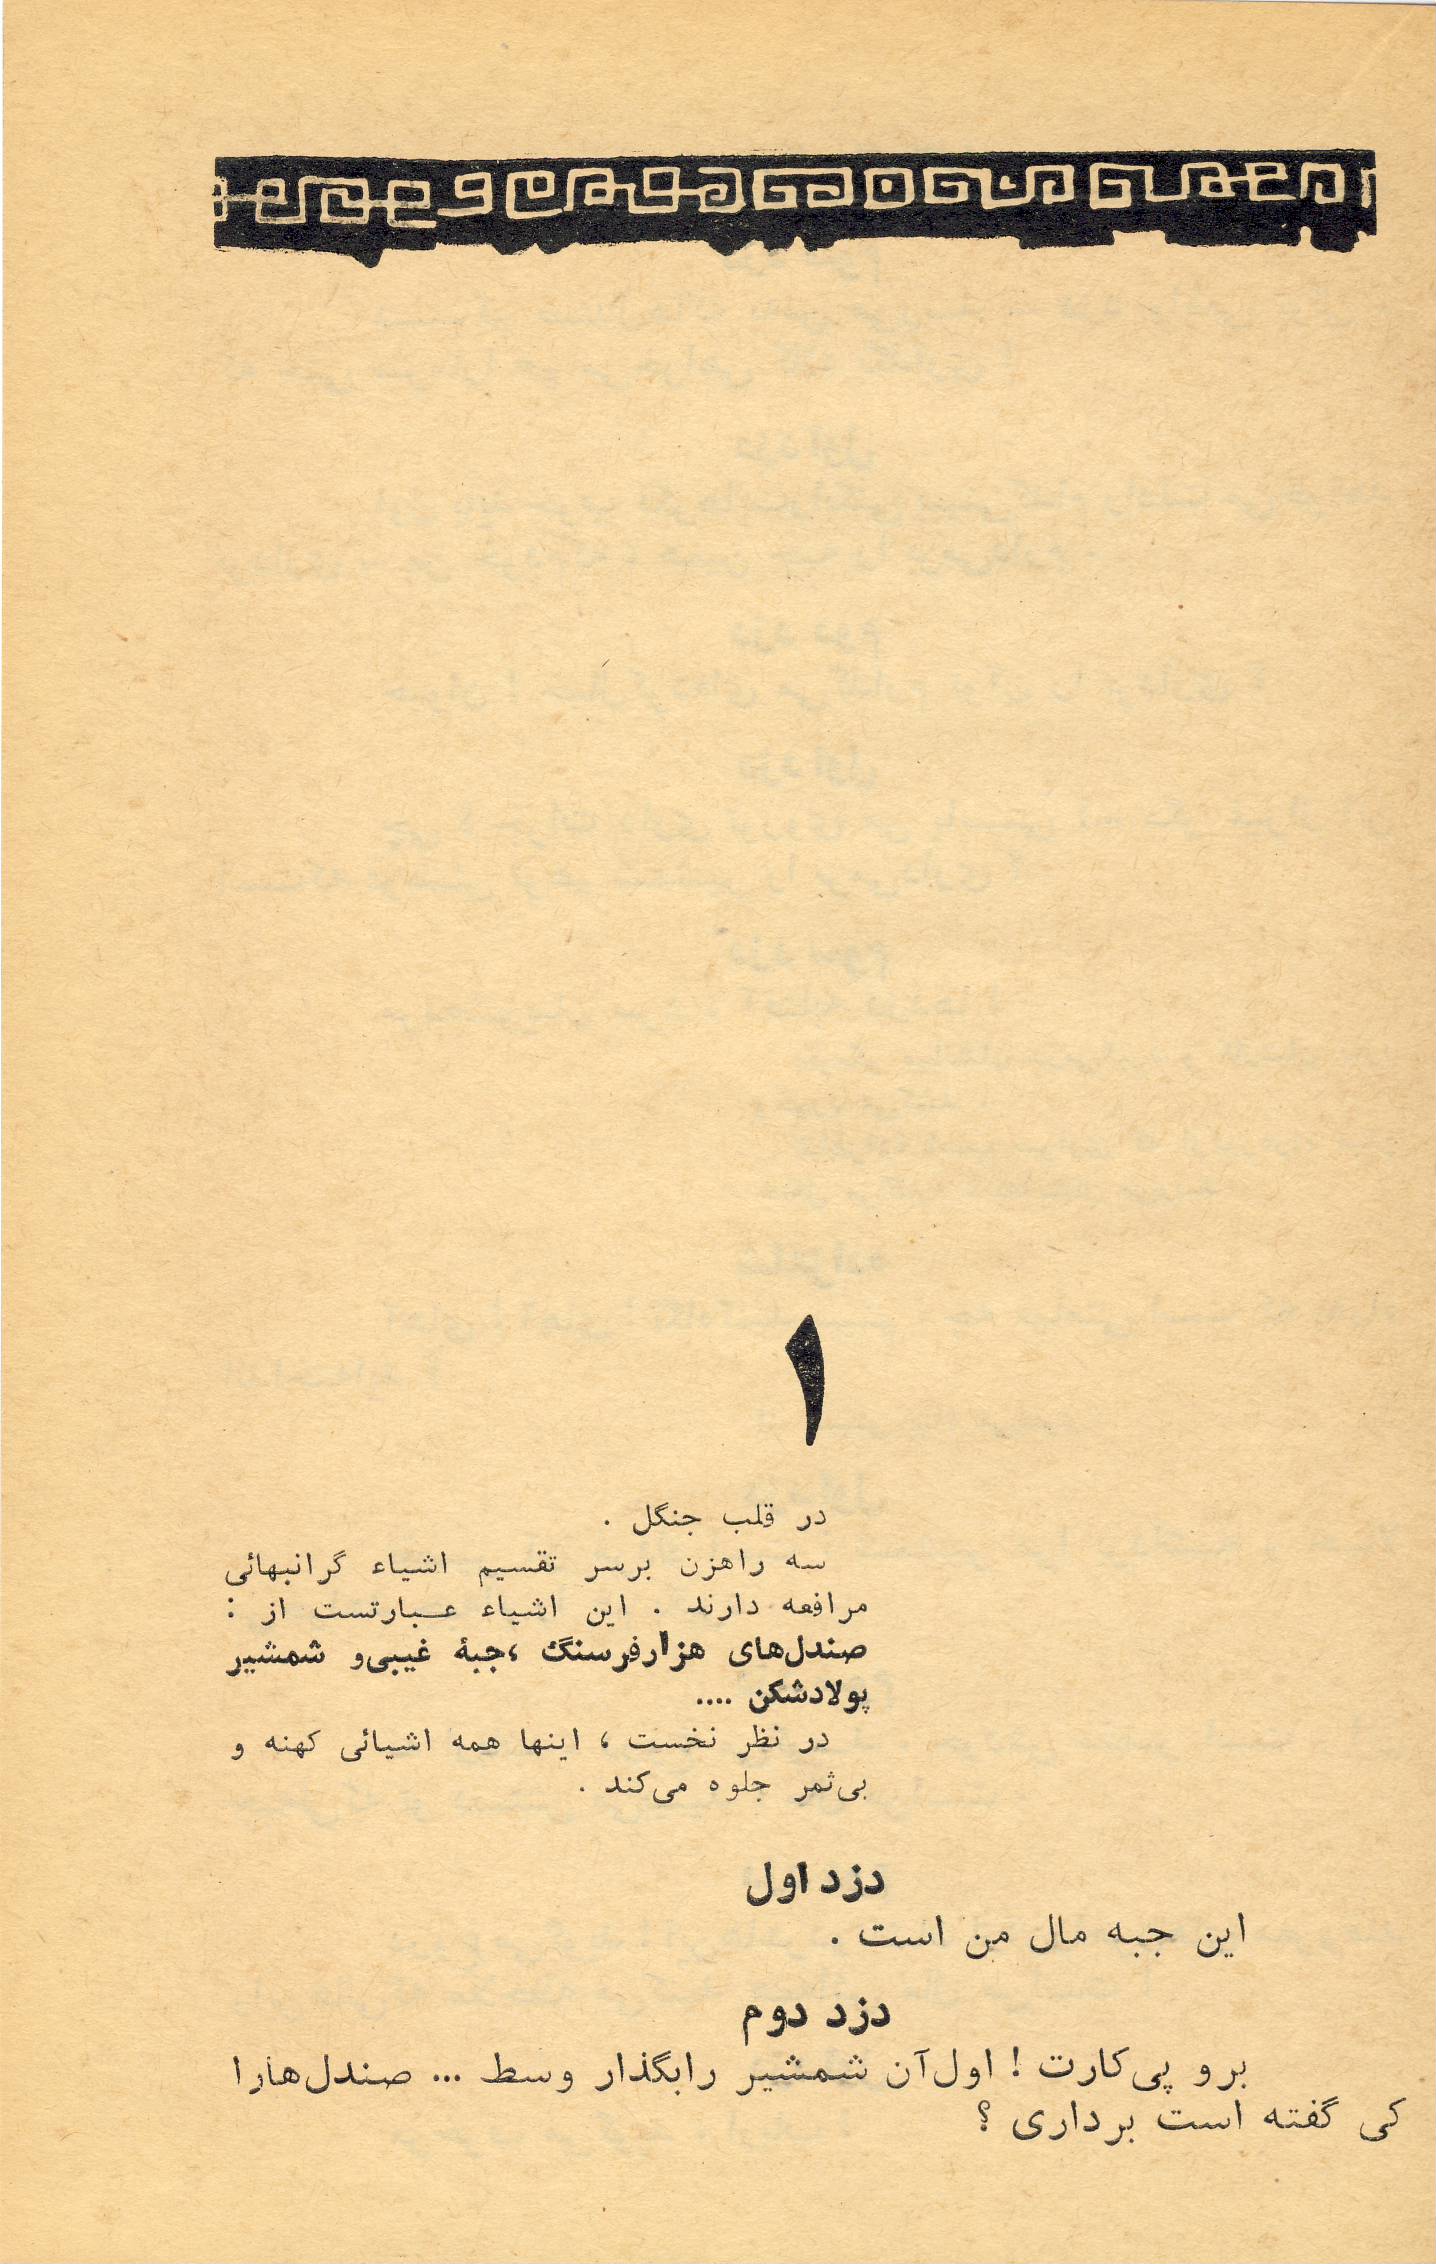 ۱
در قلب جنگل .
سه راهزن برسر تقسیم اشیاء گرانبهائی
مرافعه دارند . این اشیاء عبارتست از :
صندل‌های هزارفرسنگ ،جبۀ غیبی‌و شمشیر
پولادشکن ....
در نظر نخست ، اینها همه اشیائی کهنه و
بی‌ثمر جلوه می‌کند .
دزد اول
این جبه مال من است .
دزد دوم
برو پی‌کارت ! اول‌آن شمشیر رابگذار وسط ... صندل‌هارا
کی گفته است برداری ؟